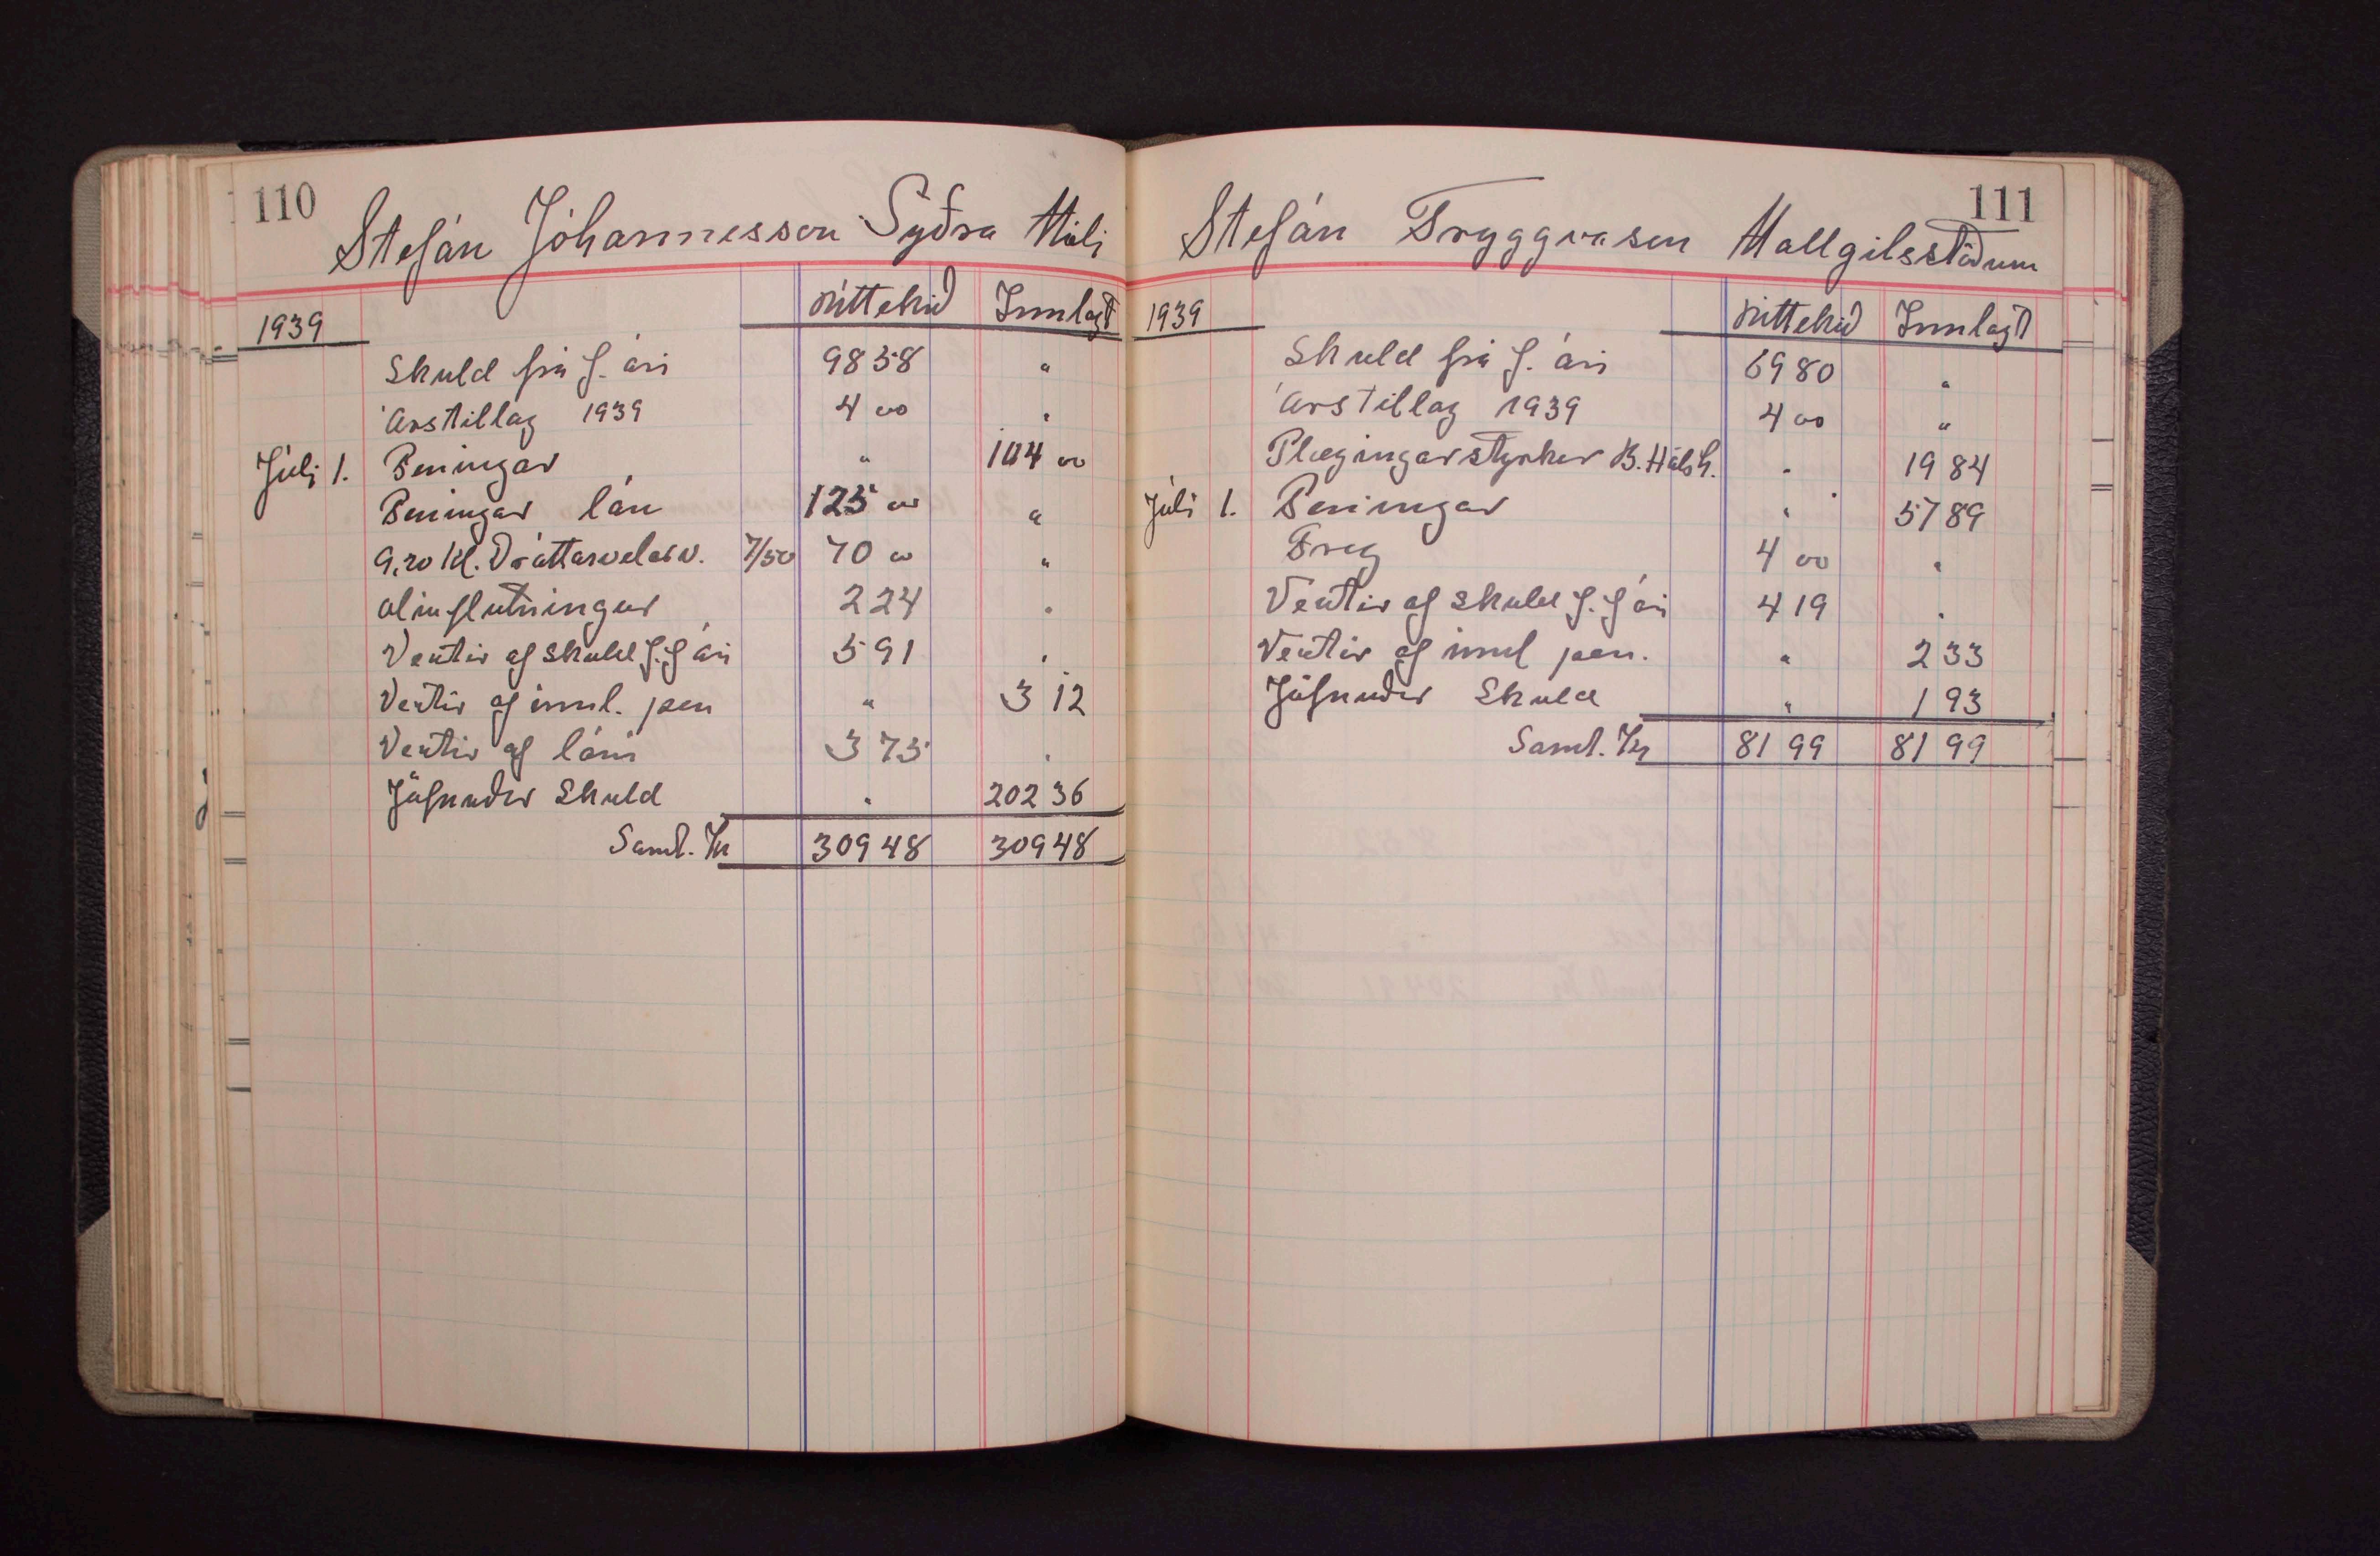 110
Stefán Jóhannesson Syðra Hóli
1939 Úttekið Innlagt
Skuld frá f. ári 98 58 "
Árstillag 1939 4 00 "
Júlí 1. Peningar " 104 00
Peningar lán 125 00 "
9,20 Kl. Dráttarvélav. 7/50 70 00 "
Olíuflutningur 2 24 "
Vextir af skuld f. f ári 5 91 "
Vextir af innl. pen " 3 12
Vextir af láni 3 75 "
Jöfnuður Skuld " 202 36
Saml. Kr 309 48 309 48
111
Stefán Tryggvason Hallgilsstöðum
1939 Úttekið Innlagt
Skuld frá f. ári 69 80 "
Árstillag 1939 4 00 "
Plægingarstyrkur B. Hálsh. " 19 84
Júlí 1. Peningar " 57 89
Treg 4 00 "
Vextir af skuld f. f ári 4 19 "
Vextir af innl pen. " 2 33
Jöfnuður Skuld " 1 93
Saml. Kr 81 99 81 99